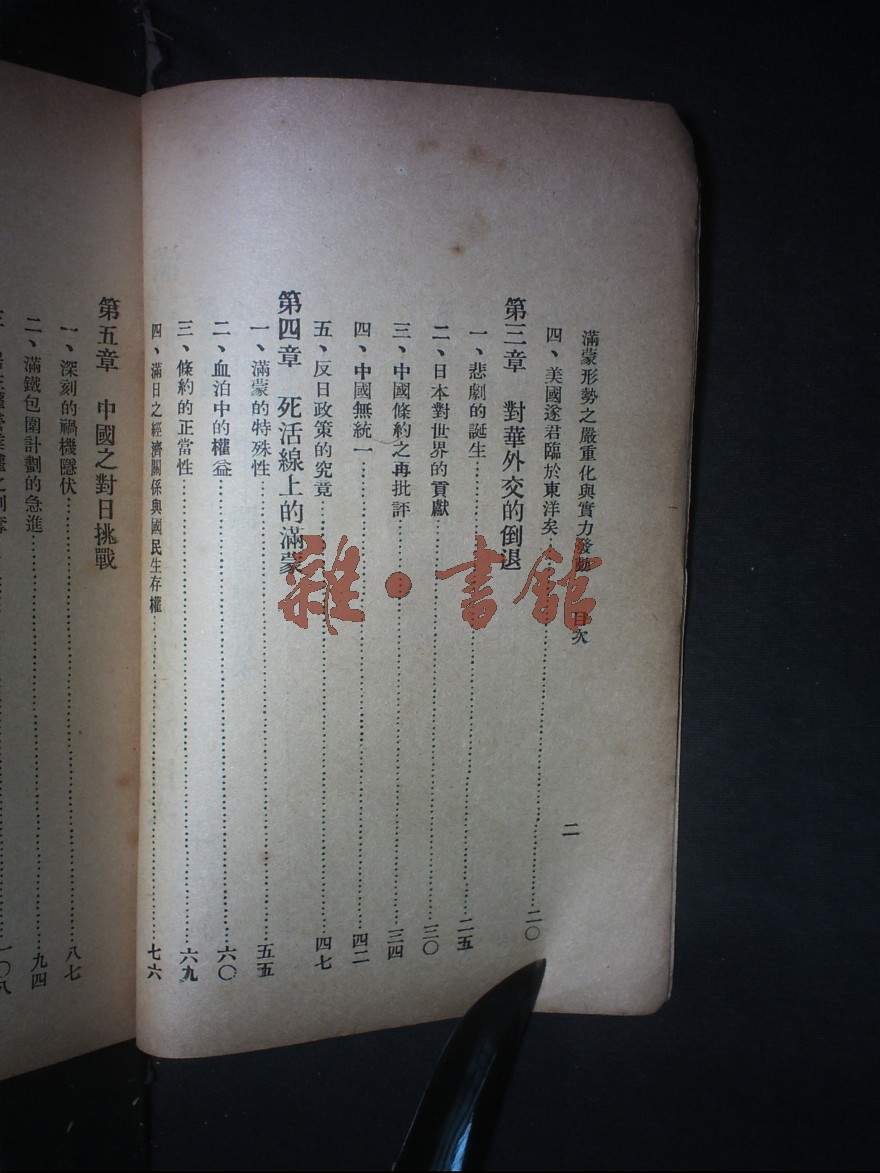 滿蒙形勢之嚴重化與實力發動 目次 二
四、美國遂君臨於東洋矣……二〇
第三章 對華外交的倒退
一、悲劇的誕生……二五
二、日本對世界的貢獻……三〇
三、中國條約之再批評……三四
四、中國無統一……四二
五、反日政策的究竟……四七
第四章 死活線上的滿蒙
一、滿蒙的特殊性……五五
二、血泊中的權益……六〇
三、條約的正當性……六九
四、滿日之經濟關係與國民生存權……七六
第五章 中國之對日挑戰
一、深刻的禍機隱伏……八七
二、滿鐵包圍計劃的急進……九四
一〇八
雜·書館